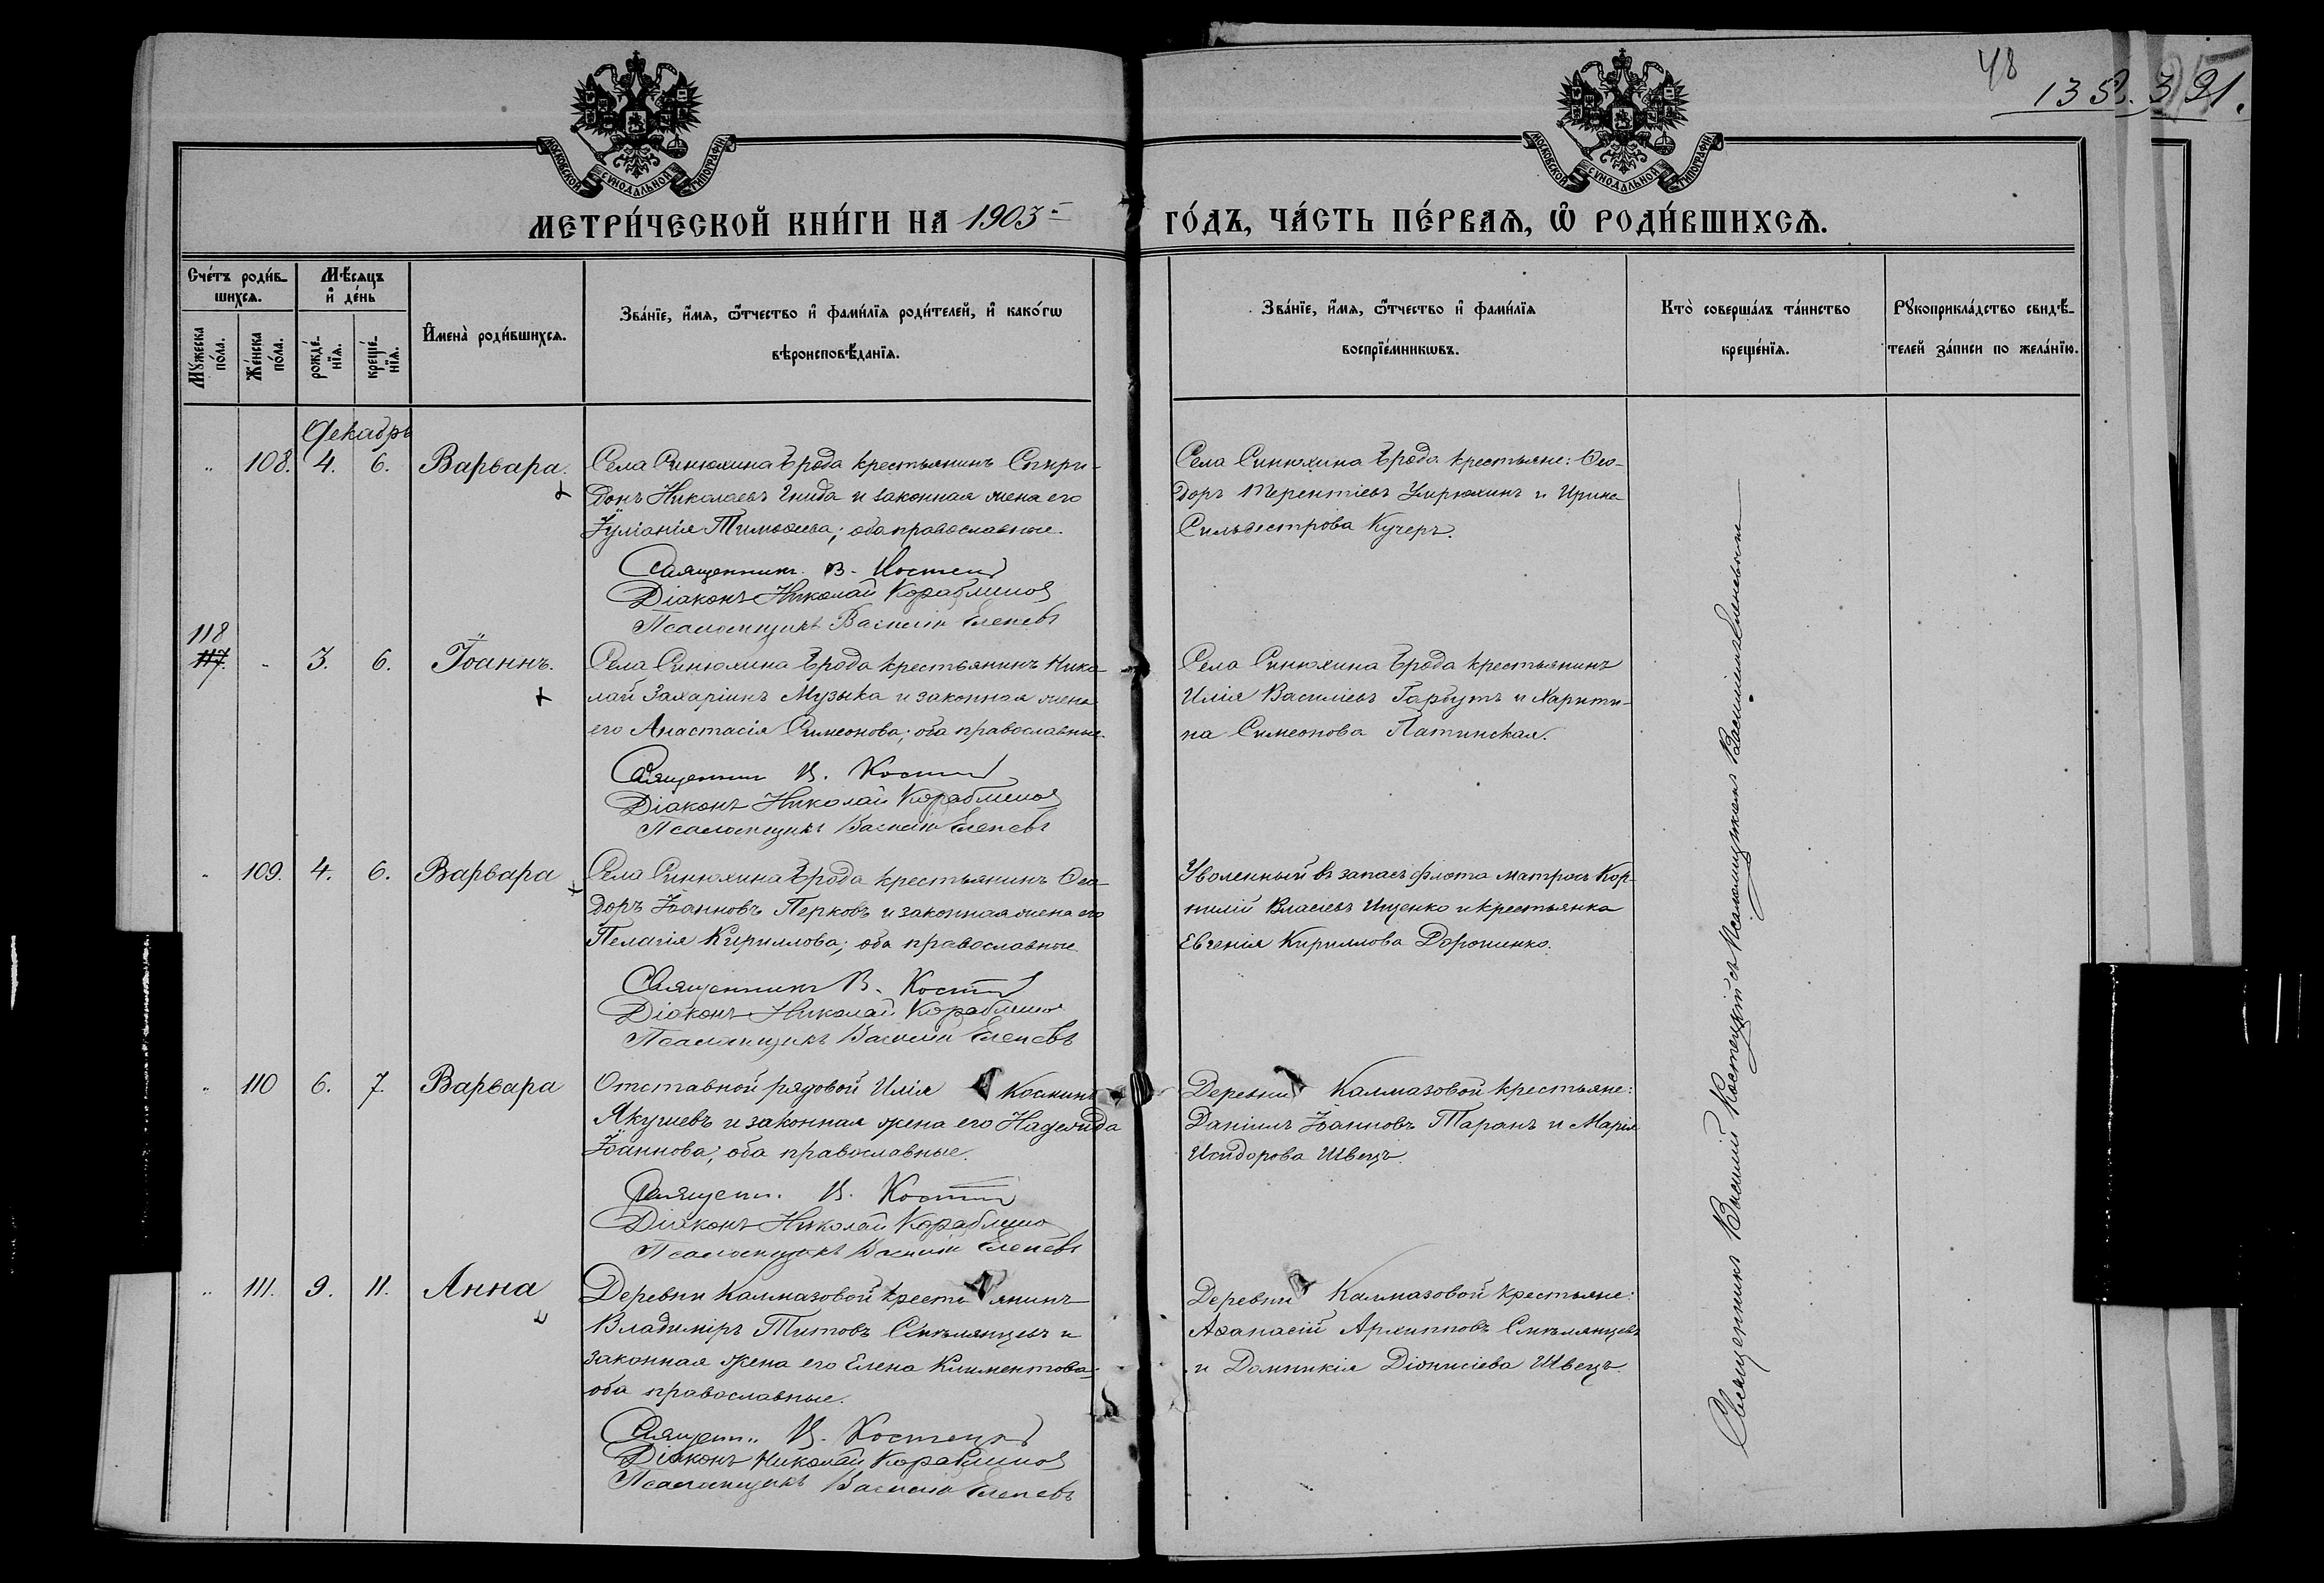 48
138. 391.
МОСКОВСКОЙ СУНОДАЛЬНОЙ ТИПОГРАФІИ
МОСКОВСКОЙ СУНОДАЛЬНОЙ ТИПОГРАФІИ
МЕТРИ́ЧЕСКОЙ КНИ́ГИ НА 1903 ГО́ДЪ, ЧА́СТЬ ПЕ́РВАЯ, Ѽ РОДИ́ВШИХСѦ.
Сче́тъ роди́в-
шихсѧ.
Мѣ́сѧцъ
и҆ де́нь
Мꙋ́жеска
по́ла.
Же́нска
по́ла.
рожде́-
нїѧ.
креще́-
нїѧ.
И҆мена̀ роди́вшихсѧ.
Зва́нїе, и҆́мѧ, ѻ҆́тчество и҆ фами́лїѧ роди́телей, и҆ како́гѡ
вѣроисповѣ́данїѧ.
Зва́нїе, и҆́мѧ, ѻ҆́тчество и҆ фами́лїѧ
воспрїе́мникѡвъ.
Кто̀ соверша́лъ та́инство
креще́нїѧ.
Рꙋкоприкла́дство свидѣ́-
телей за́писи по жела́нїю.
Декабрь
108. 4. 6. Варвара.
Села Синюхина Брода крестьянинъ Спири-
донъ Николаевъ Гнида и законная жена его
Іуліанія Тимоѳеева; оба православные.
Священникъ В.
Діаконъ Николай Кораблиновъ
Псаломщикъ Василій Еленевъ
Села Синюхина Брода крестьяне: Ѳео-
доръ Терентіевъ и Ирина
Сильвестрова Кучеръ.
118
117. 3. 6. Іоаннъ.
Села Синюхина Брода крестьянинъ Нико-
лай Захаріинъ Музыка и законная жена
его Анастасія Симеонова; оба православные.
Священникъ В.
Діаконъ Николай Кораблиновъ
Псаломщикъ Василій Еленевъ
Села Синюхина Брода крестьянинъ
Илія Василіевъ Гарбузъ и Харити-
на Симеонова
109. 4. 6. Варвара
Села Синюхина Брода крестьянинъ Ѳео-
доръ Іоанновъ Перковъ и законная жена его
Пелагія Кириллова; оба православные
Священникъ В.
Діаконъ Николай Кораблиновъ
Псаломщикъ Василій Еленевъ
Уволенный въ запасъ флота матросъ Кор-
нилій Власіевъ Ищенко и крестьянка
Евгенія Кириллова Дорошенко.
110 6. 7. Варвара
Отставной рядовой Илія Косминъ
Якушевъ и законная жена его Надежда
Іоаннова; оба православные.
Священ. В.
Діаконъ Николай Кораблиновъ
Псаломщикъ Василій Еленевъ
Деревни Калмазовой крестьяне:
Даніилъ Іоанновъ Таранъ и Марія
Исидорова Швецъ.
111. 9. 11. Анна
Деревни Калмазовой крестьянинъ
Владиміръ Титовъ Смѣлянцевъ и
законная жена его Елена Климентова;
оба православные.
Священн. В. Костецкій
Діаконъ Николай Кораблиновъ
Псаломщикъ Василій Еленевъ
Деревни Калмазовой крестьяне:
Аѳанасій Архипповъ Смѣлянцевъ
и Домникія Діонисіева Швецъ.
Священникъ Василій Костецкій съ Псаломщикомъ Василіемъ Еленевымъ